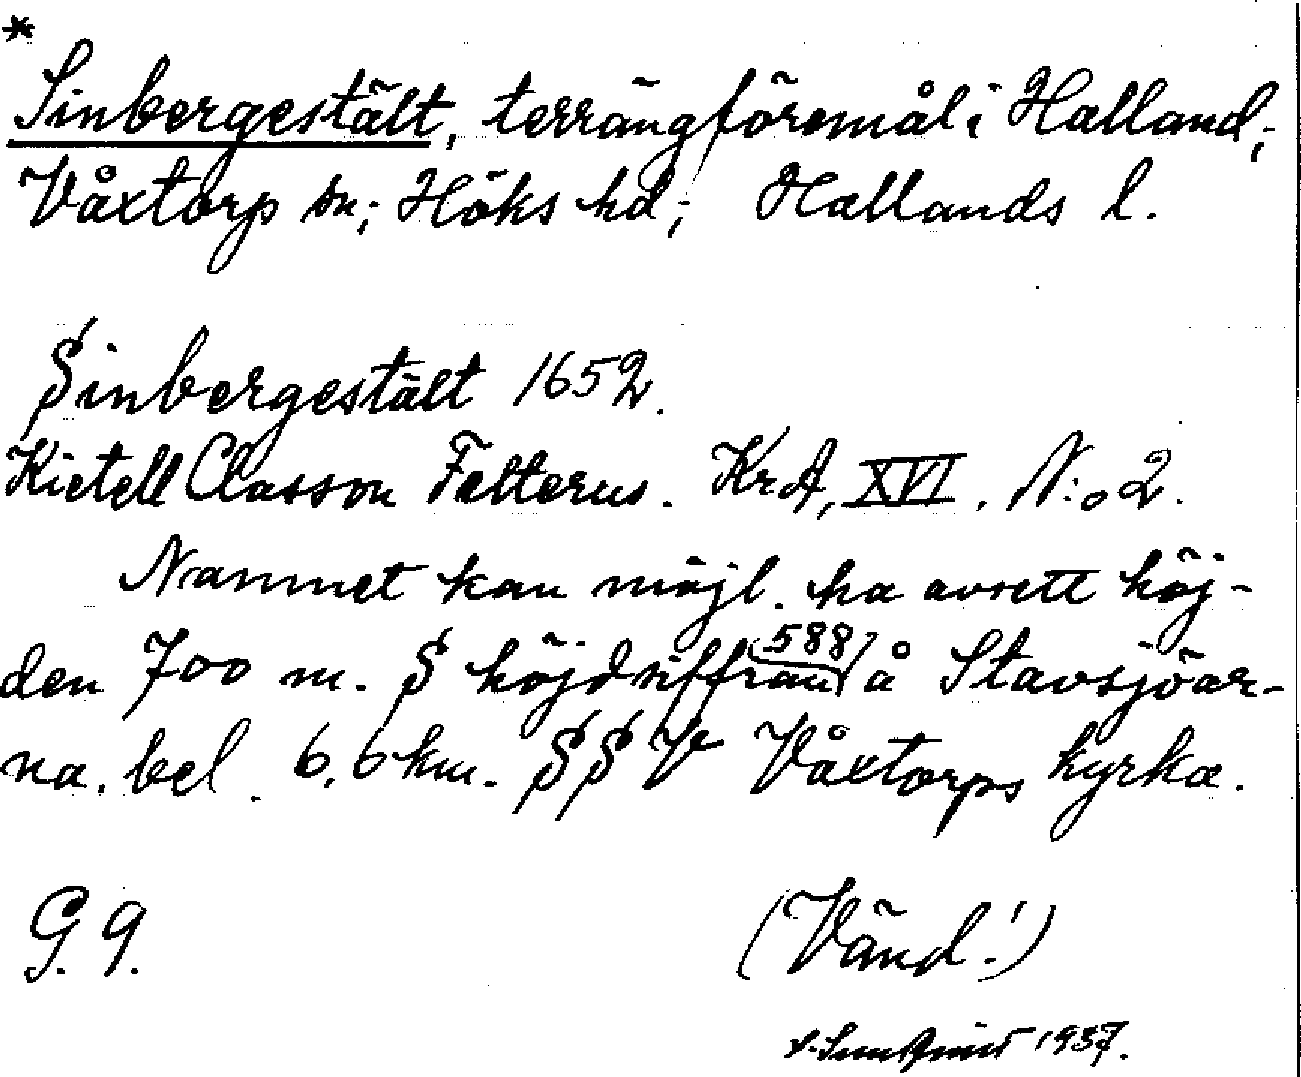 *
Sinbergestält, terrängföremål i Halland;
Våxtorp sn; Höks hd; Hallands l.
Sinbergestält 1652.
Kietell Classon Felterus. KrA, XVI. N:o 2.
Namnet kan möjl. ha avsett höj-
den 700 m. S höjdsiffran (588) å Stavsjöar-
na, bel. 6,6 km. SSV Våxtorps kyrka.
G. 9.
(Vänd!)
1937.